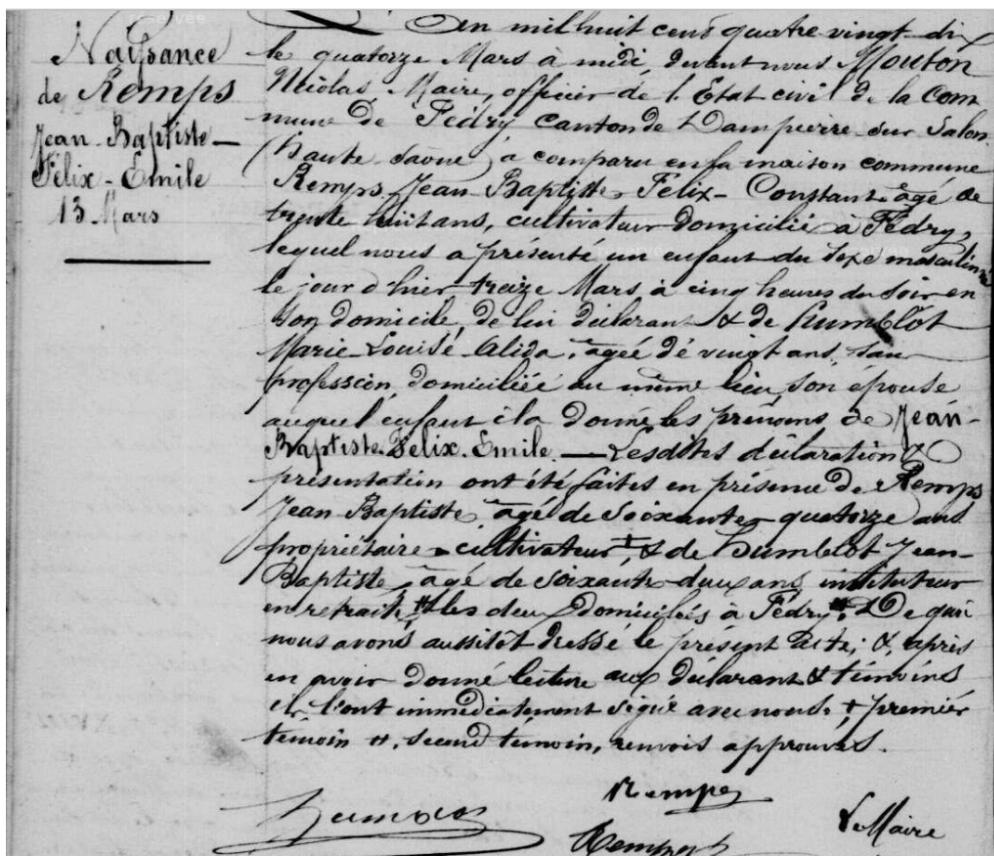 Naissance
de Remps
Jean-Baptiste-
Félix-Emile
13 Mars
L'an mil huit cent quatre vingt dix
le quatorze Mars à midi devant nous Mouton
Nicolas, Maire, officier de l'Etat civil de la com
mune de Fédry canton de Dampierre-sur-Salon
(Haute Saône) à comparu en sa maison commune
Remps Jean-Baptiste-Félix-Constant, âgé de
trente huit ans, cultivateur domicilié à Fédry,
lequel nous a présenté un enfant du sexe masculin né
le jour d'hier treize Mars à cinq heures du soir en
son domicile, de lui déclarant & de Humblot
Marie-Louise Alida, âgée de vingt ans, sans
profession domiciliée au même lieu, son épouse
auquel enfant il a donné les prénoms de Jean-
Baptiste-Félix-Emile. — Lesdites déclaration &
présentation ont été faites en présence de Remps
Jean-Baptiste, âgé de soixante-quatorze ans
propriétaire-cultivateur ‡ & de Humblot Jean-
Baptiste, âgé de soixante-deux ans, instituteur
en retraite, # les deux domiciliés à Fédry. De quoi
nous avons aussitôt dressé le présent acte; & après
en avoir donné lecture aux déclarant & témoins
ils l'ont immédiatement signé avec nous. ‡ premier
témoin #, second témoin, renvois approuvés.
Remps
Le Maire
Remps